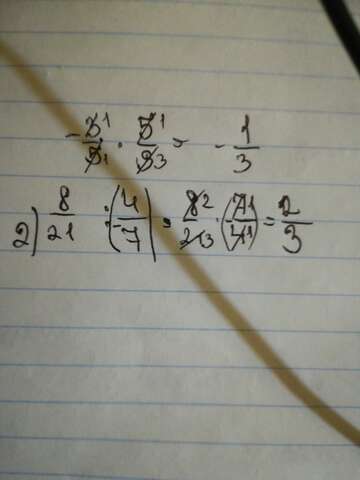 -3̶¹/5̶₁ · 5̶¹/9̶₃ = -1/3
2) 8/21 : (4/-7) = 8̶²/2̶1̶₃ · (7̶¹/4̶¹) = 2/3